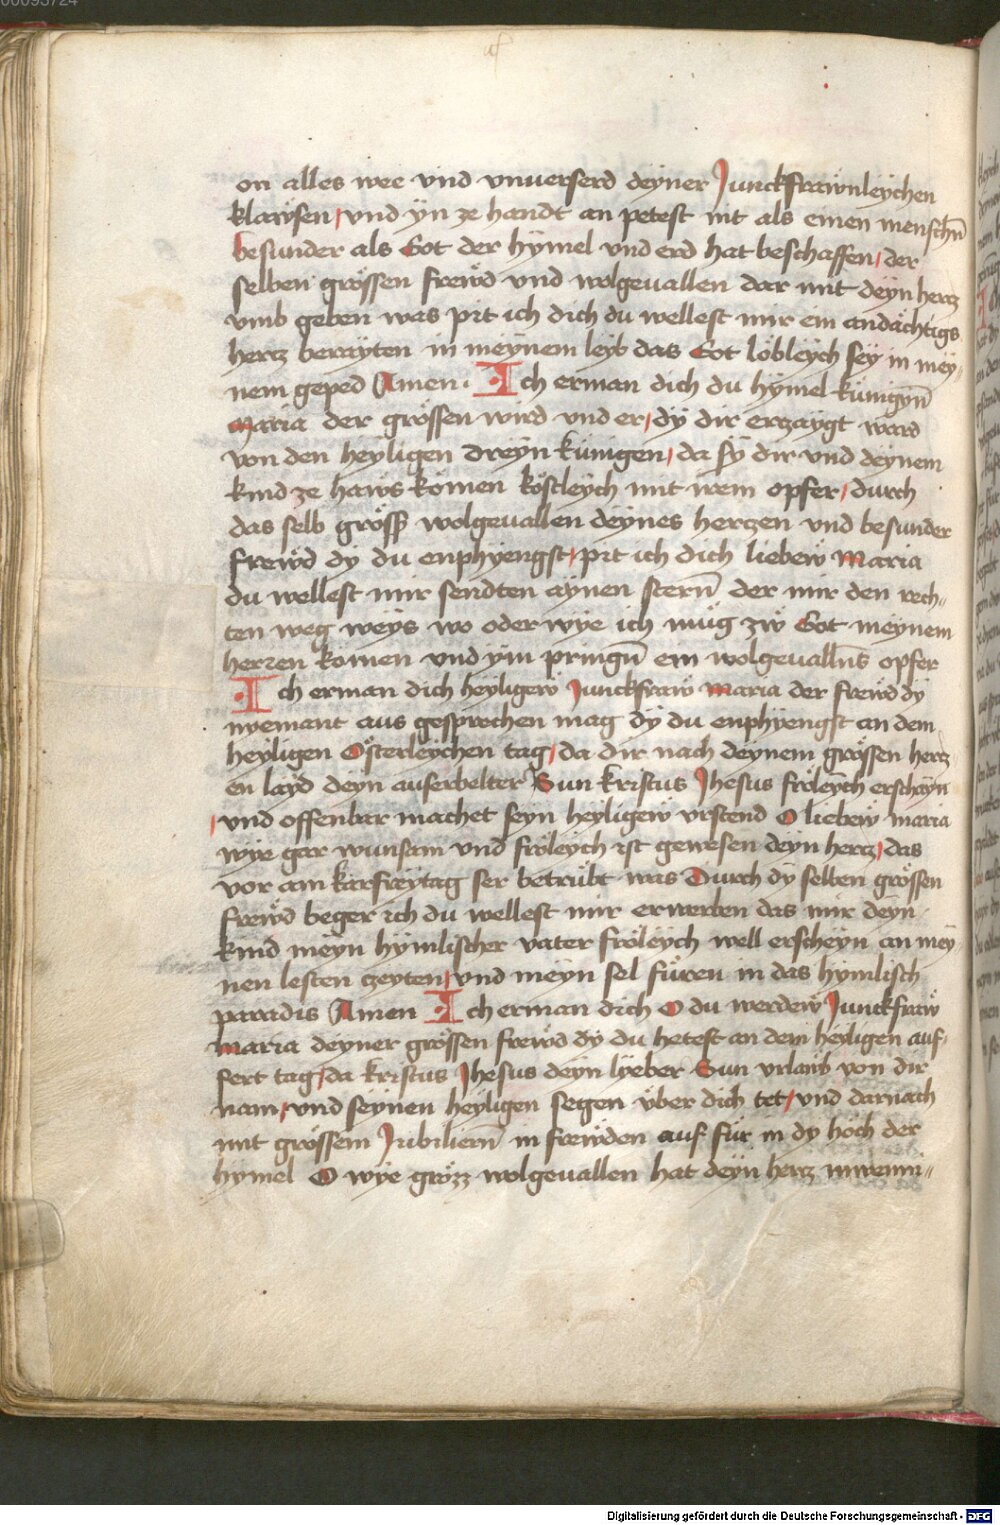 on alles wee vnd vnuerserd deyner Junckfrawnleychen
klawsen / vnd yn ze handt an petest nit als einen menschn̄
besunder als Got der hymel vnd erd hat beschaffen / der
selben grössen frewd vnd wolgeuallen dar mit deyn hertz
vmb geben was pit ich dich du wellest mir ein andächtigs
hertz berayten in meynem leyb das Got lobleych sey in mey-
nem geped Amen. Ich erman dich du hymel künigyn̄
Maria der grössen wird vnd er / dy dir erczaygt ward
von den heyligen dreyn künigen / da sy dir vnd deynem
kind ze haws komen köstleych mit irem opfer / durch
das selb grösß wolgeuallen deynes hertzen vnd besunder
frewd dy du enphyengst / pit ich dich liebew Maria
du wellest mir sendten aynen stern̄ der mir den rech-
ten weg weys wo oder wye ich müg zw Got meynem
herren komen vnd ym pringn̄ ein wolgeualln̄s opfer
Ich erman dich heyligew Junckfraw Maria der frewd dy
nyemant aus gesprechen mag dy du enphyengst an dem
heyligen Österleychen tag / da dir nach deynem grössen hertz-
en layd deyn auserbelter Sun kristus Jhesus fröleych erschayn
/ vnd offenbar machet seyn heyligew vrstend O liebew Maria
wye gar wunsam vnd fröleych ist gewesen deyn hertz / das
vor am karfreytag ser betrübt was Durch dy selben grössen
frewd beger ich du wellest mir erwerben das mir deyn
kind meyn hymlischer vater fröleych well erscheyn an mey
nen lesten czeyten / vnd meyn sel füren in das hymlisch
paradis Amen Ich erman dich O du werdew Junckfraw
Maria deyner grössen frewd dy du hetest an dem heyligen auf-
fert tag / da kristus Jhesus deyn lyeber Sun vrlaub von dir
nam / vnd seynen heyligen segen über dich tet / vnd darnach
mit grössem Jubiliern̄ in frewden auf für in dy höch der
hymel O wye grözz wolgeuallen hat deyn hertz